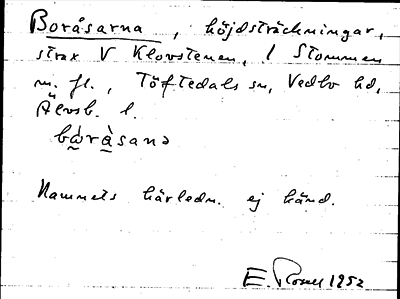 Boråsarna, höjdsträckningar,
strax V Klovstenen, / Stommen
m. fl., Töftedals sn, Vedbo hd,
Älvsb. l.
bàràsanə
Namnets härledn. ej känd.
E. 1952